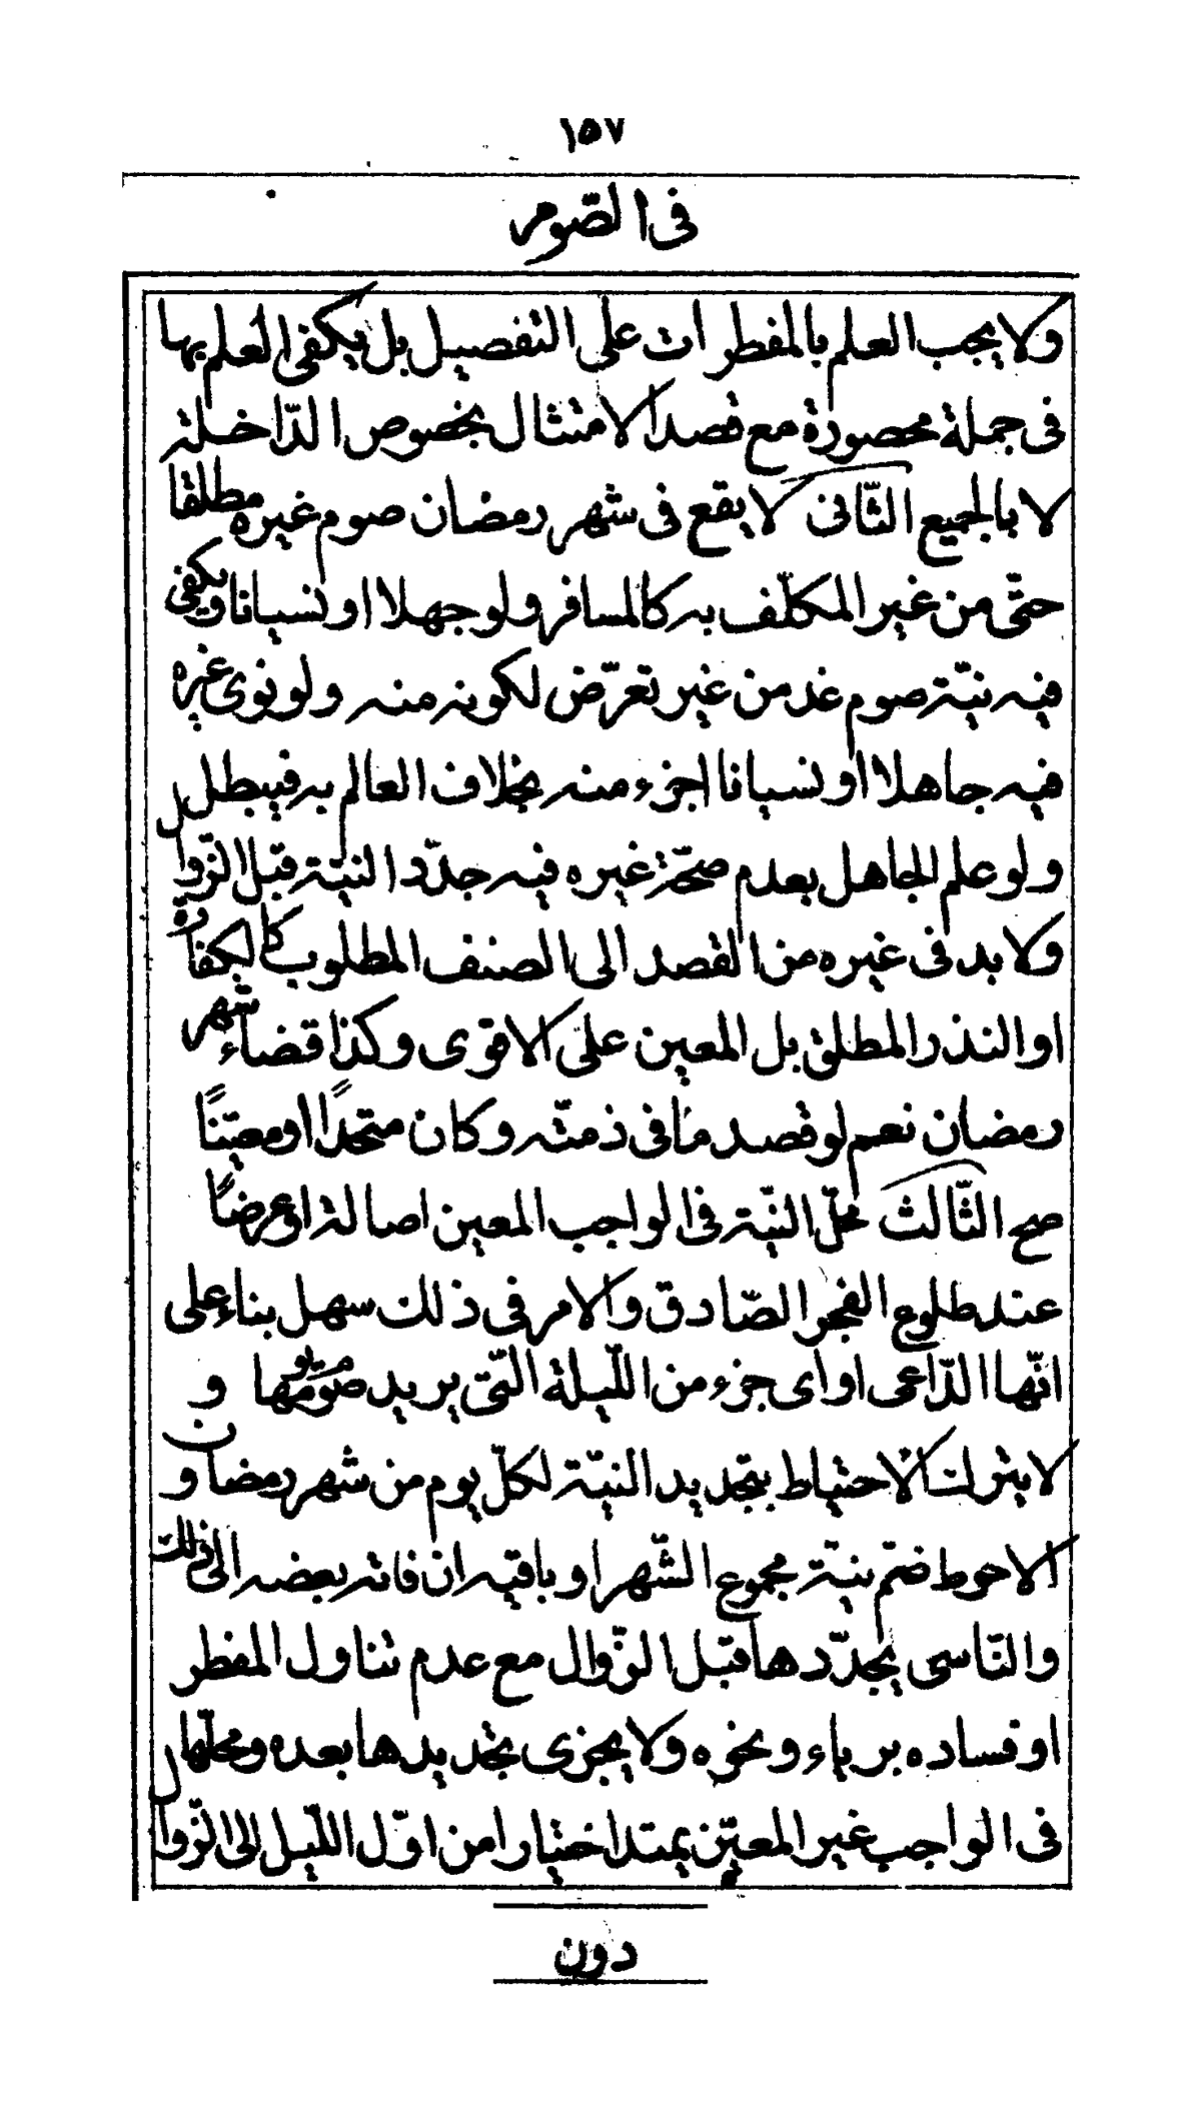 ١٥٧
فى الصّوم
ولا يجب العلم بالمفطرات على التفصيل بل يكفى العلم بها
فى جملة محصورة مع قصد الامتثال بخصوص الدّاخلة
لا بالجميع الثّانى لا يقع فى شهر رمضان صوم غيره مطلقا
حتّى من غير المكلّف به كالمسافر ولو جهلا او نسيانا ويكفى
فيه نيّة صوم غد من غير تعرّض لكونه منه ولو نوى غيره
فيه جاهلا او نسيانا اجزء منه بخلاف العالم به فيبطل
ولو علم الجاهل بعدم صحّة غيره فيه جدّد النيّة قبل الزّوال
ولا بد فى غيره من القصد الى الصنف المطلوب كالكفارة
او النذر المطلق بل المعين على الاقوى وكذا قضاء شهر
رمضان نعم لو قصد ما فى ذمّته وكان متحدًا او معيّنًا
صح الثّالث محلّ النيّة فى الواجب المعين اصالة او عرضًا
عند طلوع الفجر الصّادق والامر فى ذلك سهل بناء على
انّها الدّاعى او اى جزء من اللّيلة الّتى يريد صوم يومها و
لا يترك الاحتياط بتجديد النيّة لكلّ يوم من شهر رمضان و
الاحوط ضمّ نيّة مجموع الشّهر او باقيه ان فاته بعضه الى ذلك
والنّاسى يجدّدها قبل الزّوال مع عدم تناول المفطر
او فساده برياء ونحوه ولا يجزى تجديدها بعده ومحلّها
فى الواجب غير المعيّن يمتد اختيارا من اوّل اللّيل الى الزّوال
دون